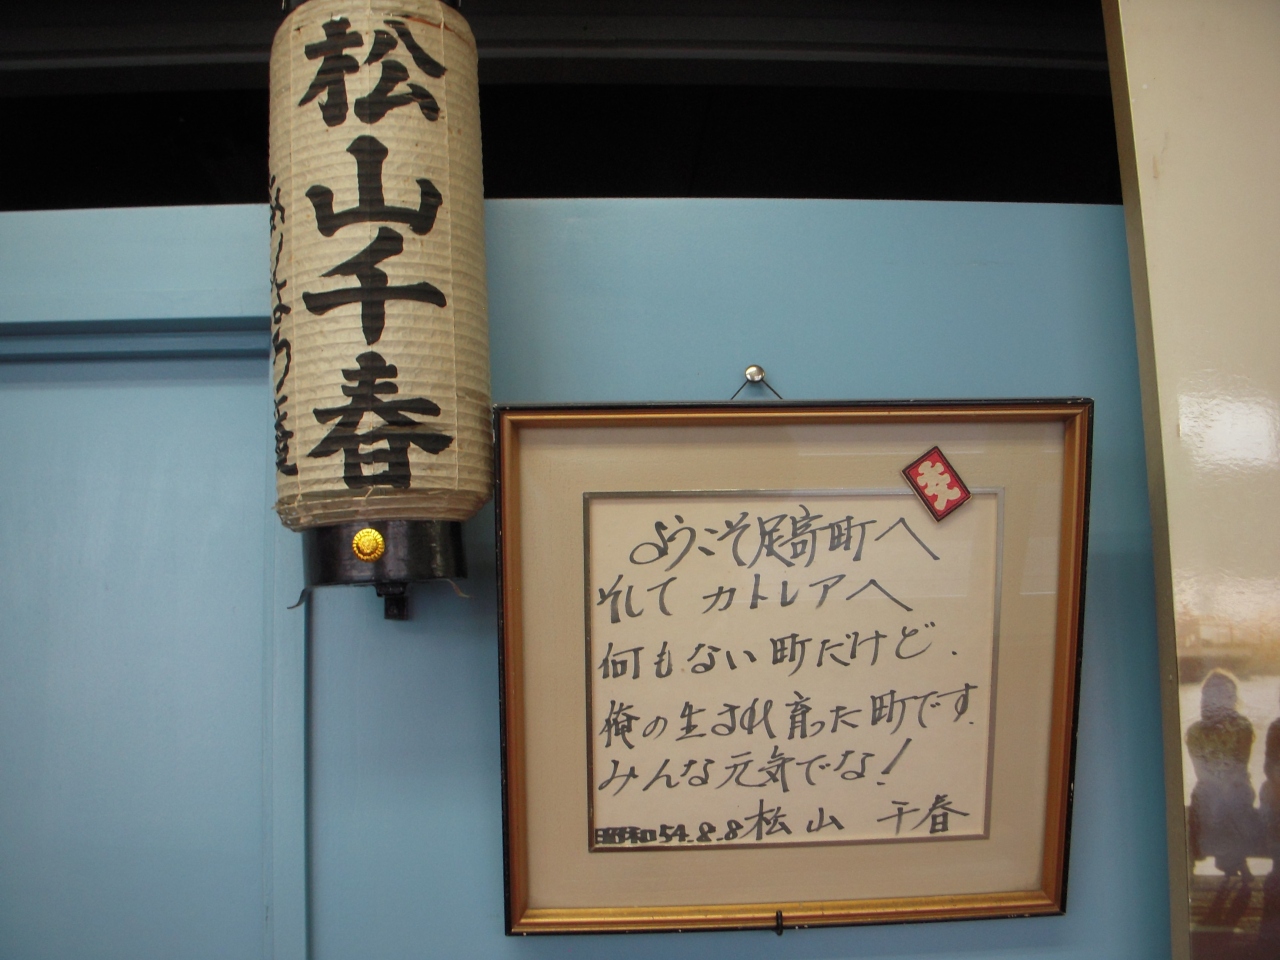 松山千春
ようこそ足寄町へ
そして カトレアへ
何もない町だけど.
俺の生まれ育った町です.
みんな元気でな!
昭和54.8.8 松山 千春